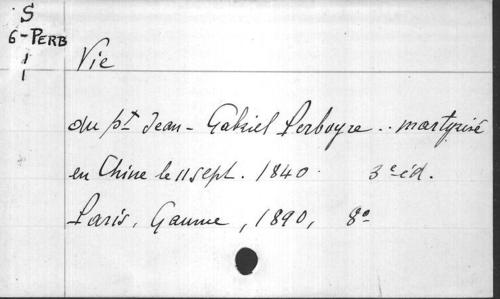 S
6-PERB
1
1
Vie
du bt Jean-Gabriel Perboyre .. martyrisé
en Chine le 11 sept. 1840. 3e éd.
Paris, Gaume, 1890, 8º